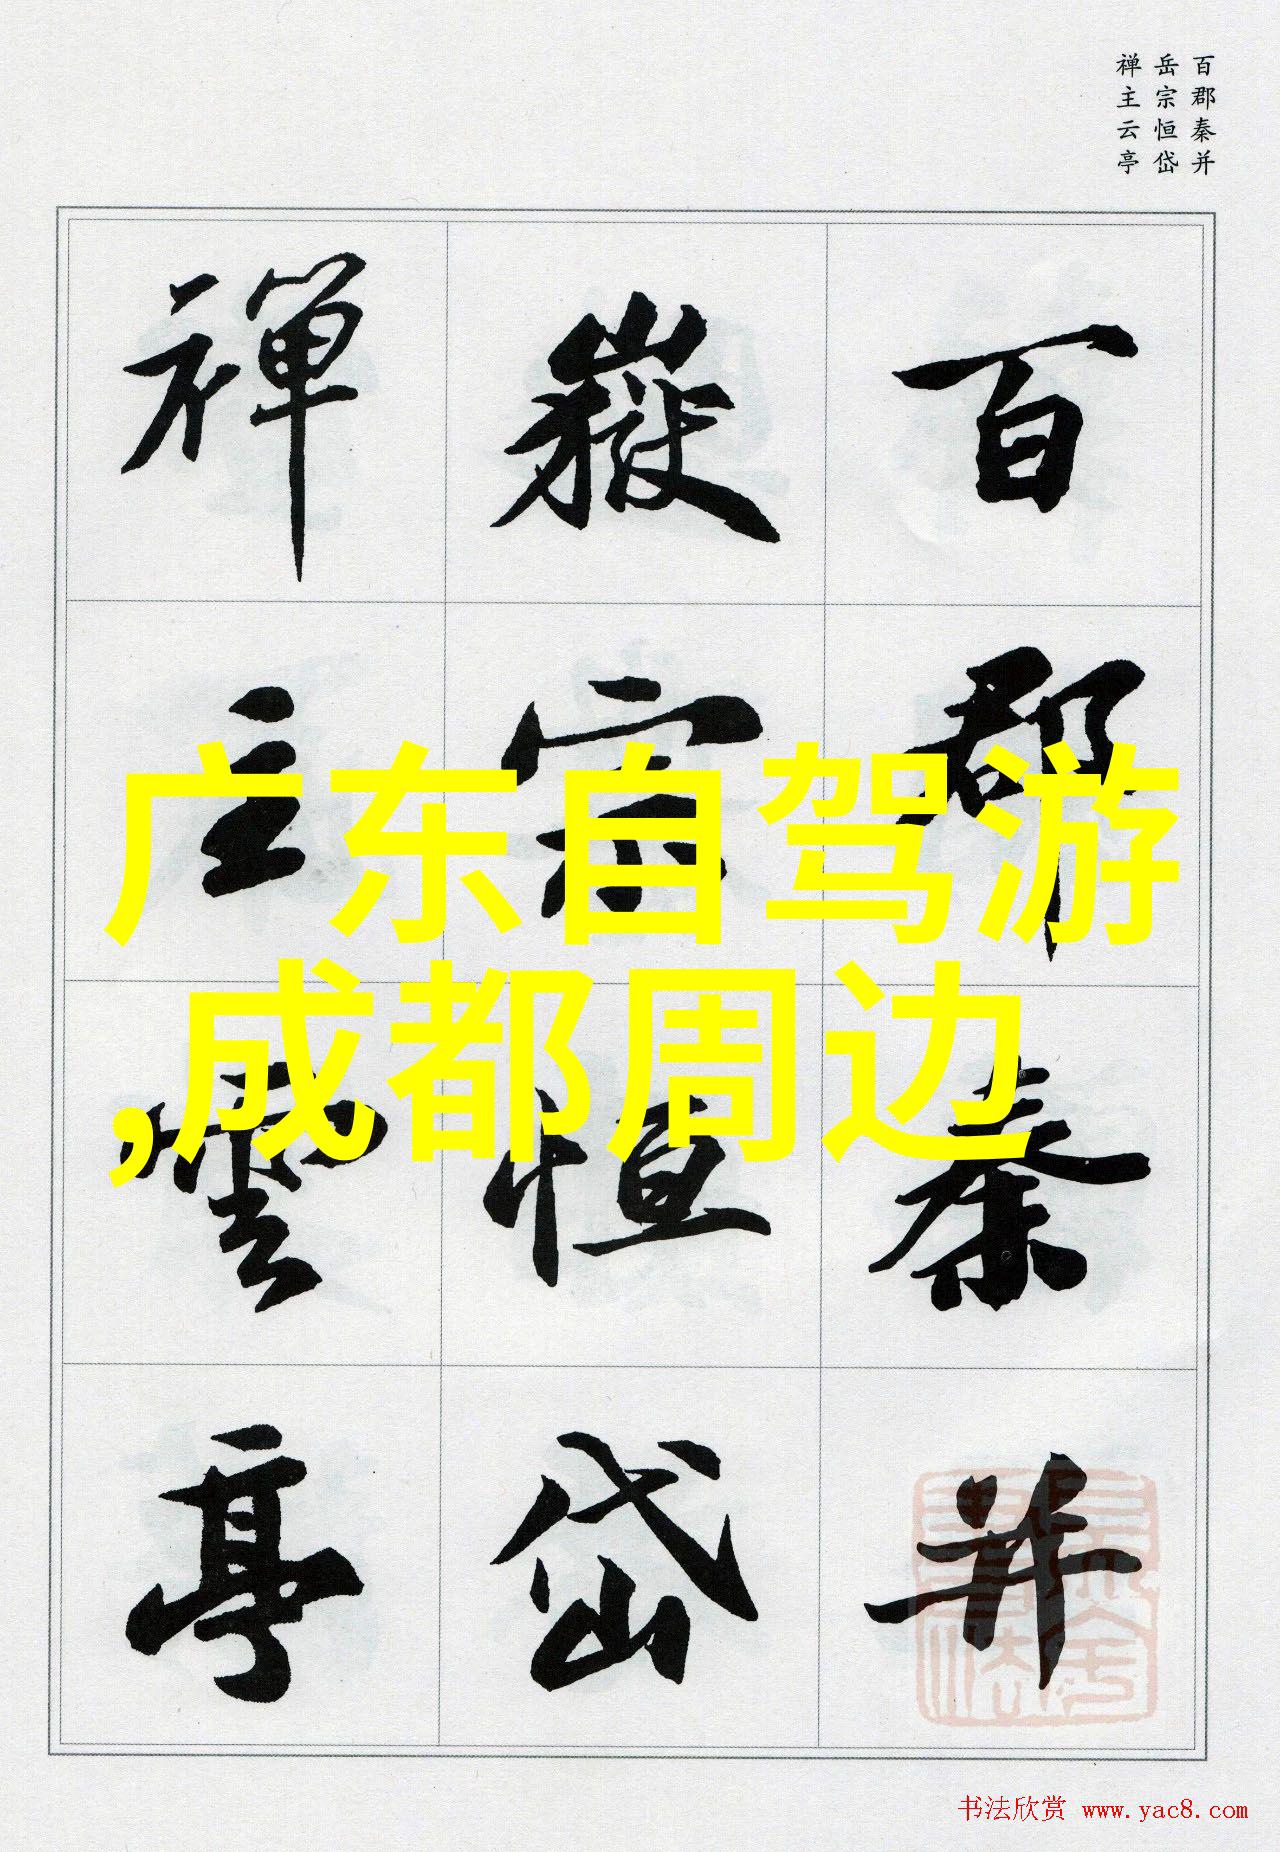 百郡秦并
岳宗恒岱
禅主云亭
百郡秦并
嶽宗恒岱
禅主云亭
广东自驾游
,成都周边
书法欣赏 www.yac8.com